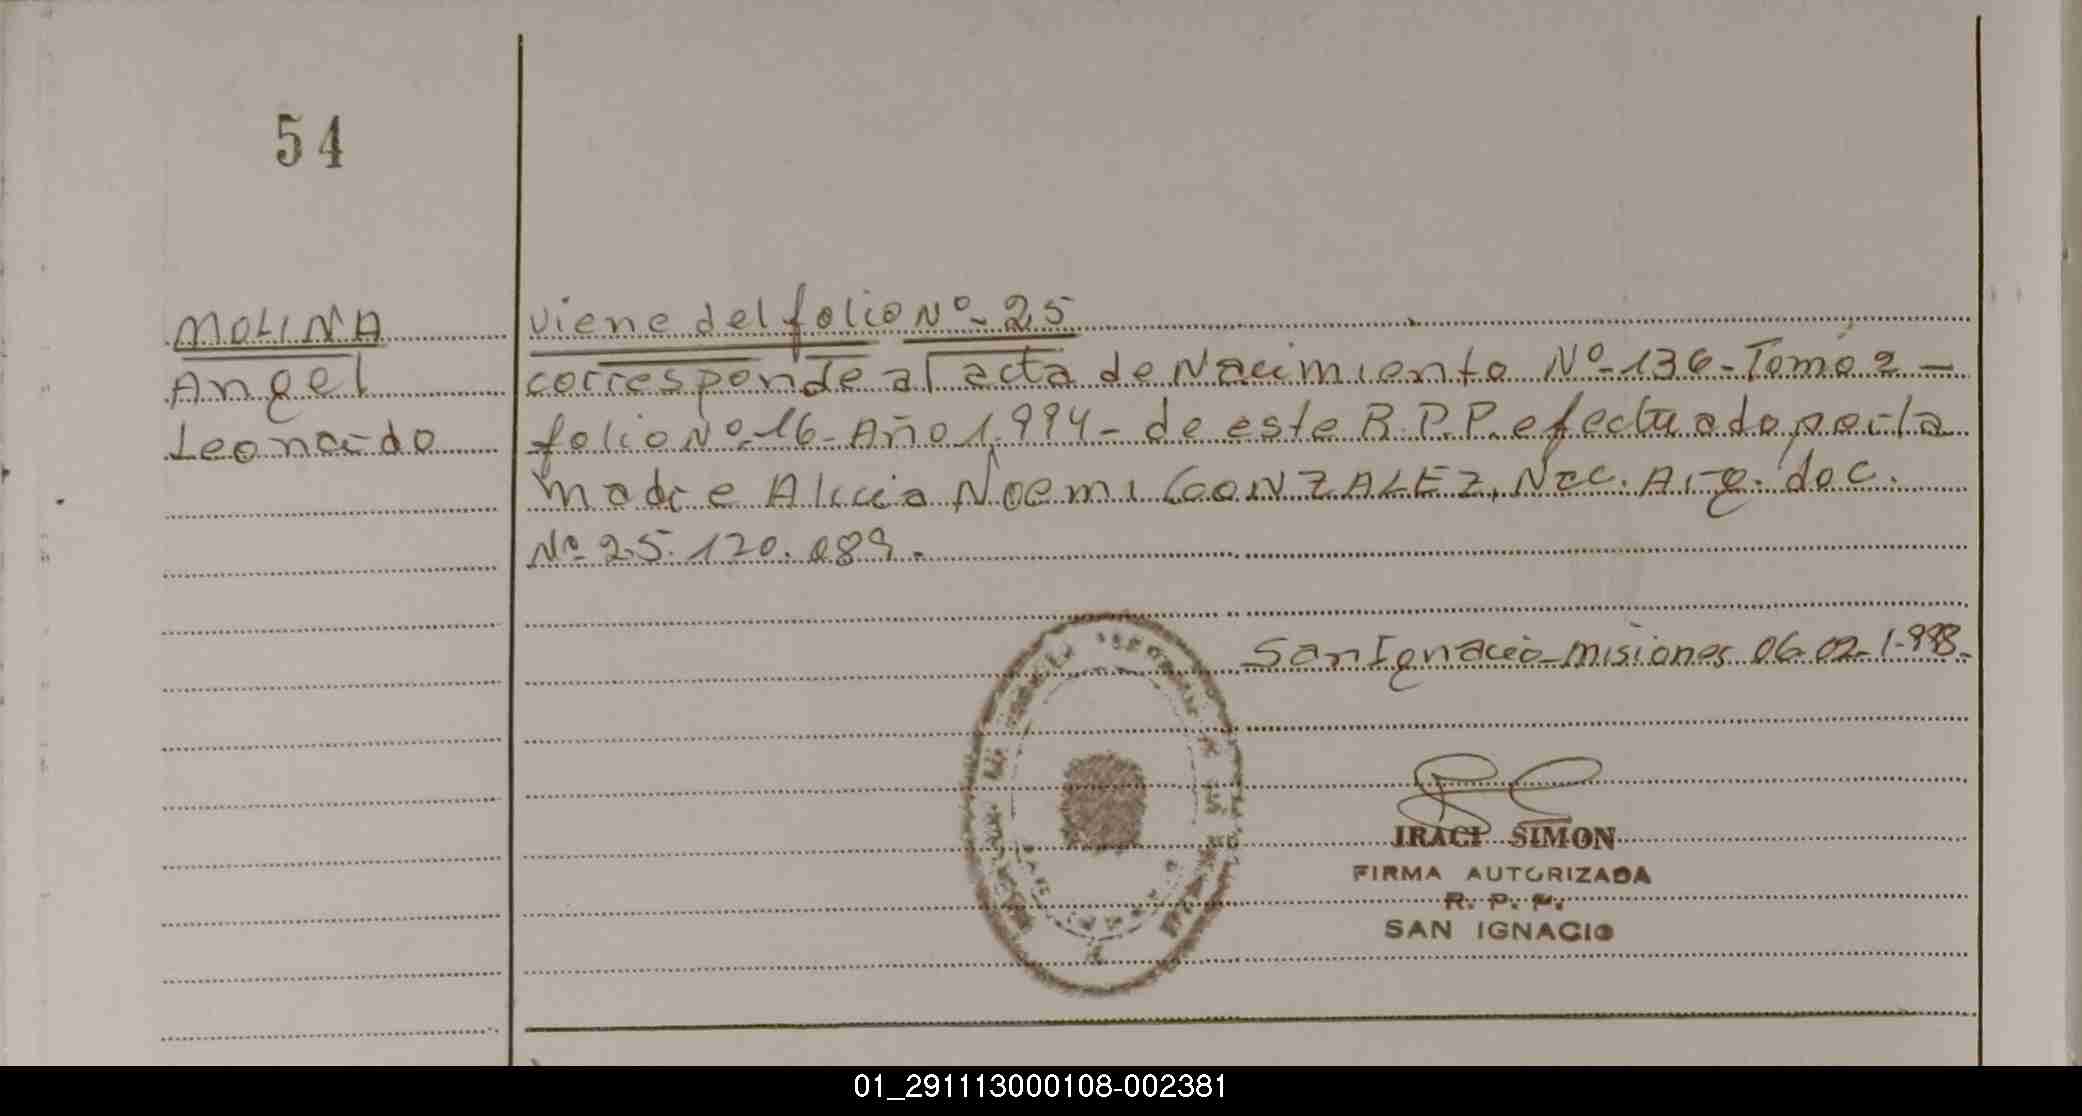 54
MOLINA
Angel
Leonardo
viene del folio Nº-25
corresponde al acta de Nacimiento Nº-136-Tomo 2-
folio Nº-16-Año 1.994- de este R.P.P. efectuado por la
madre Alicia Noemi GONZALEZ, Nac. Arg. doc.
Nº 25.120.089.
San Ignacio-misiones 06-02-1.998.-
IRACI SIMON
FIRMA AUTORIZADA
R. P. P.
SAN IGNACIO
01_291113000108-002381